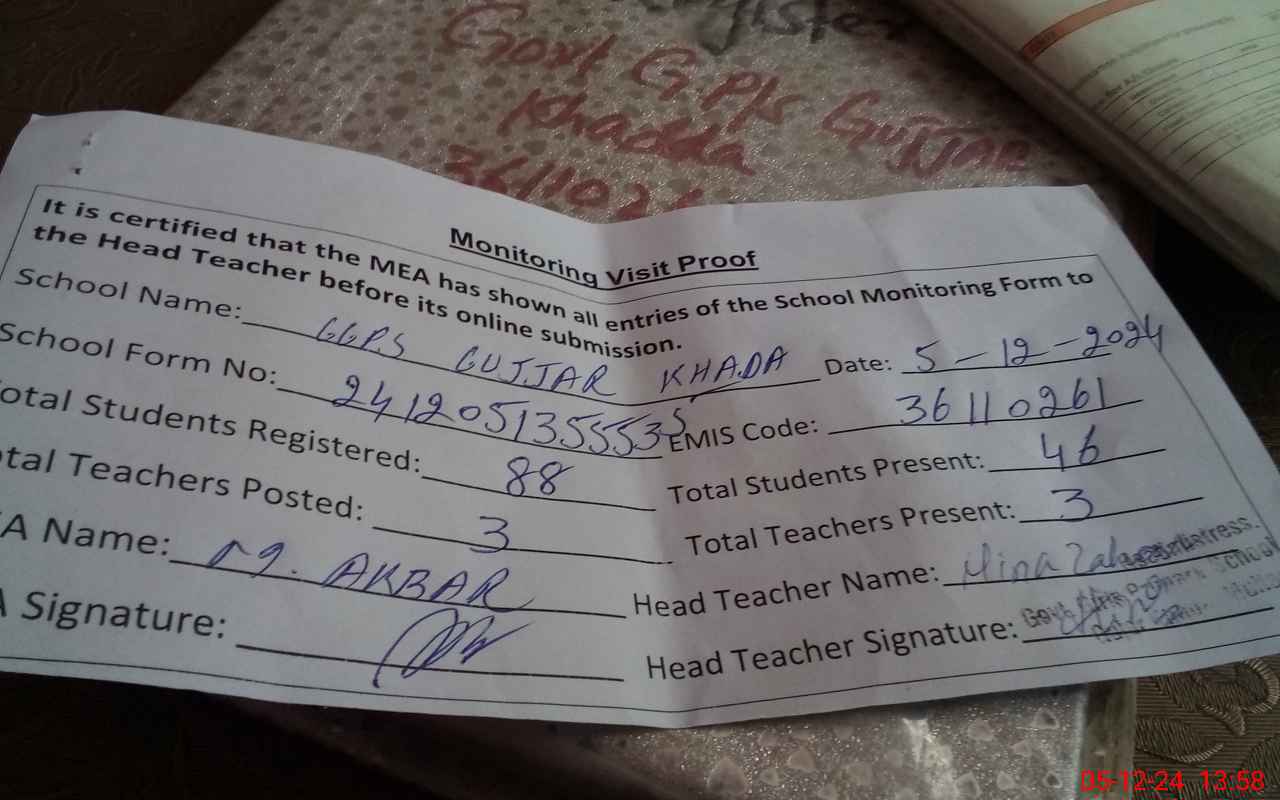 Register
Govt G.P/s GUJJAR
Khadda
3611026
Monitoring Visit Proof
It is certified that the MEA has shown all entries of the School Monitoring Form to
the Head Teacher before its online submission.
School Name: GGPS GUJJAR KHADA Date: 5-12-2024
School Form No: EMIS Code: 36110261
otal Students Registered: 88 Total Students Present: 46
otal Teachers Posted: 3 Total Teachers Present: 3
A Name: M. AKBAR Head Teacher Name: Hina
A Signature: Head Teacher Signature:
School
05-12-24 13:58